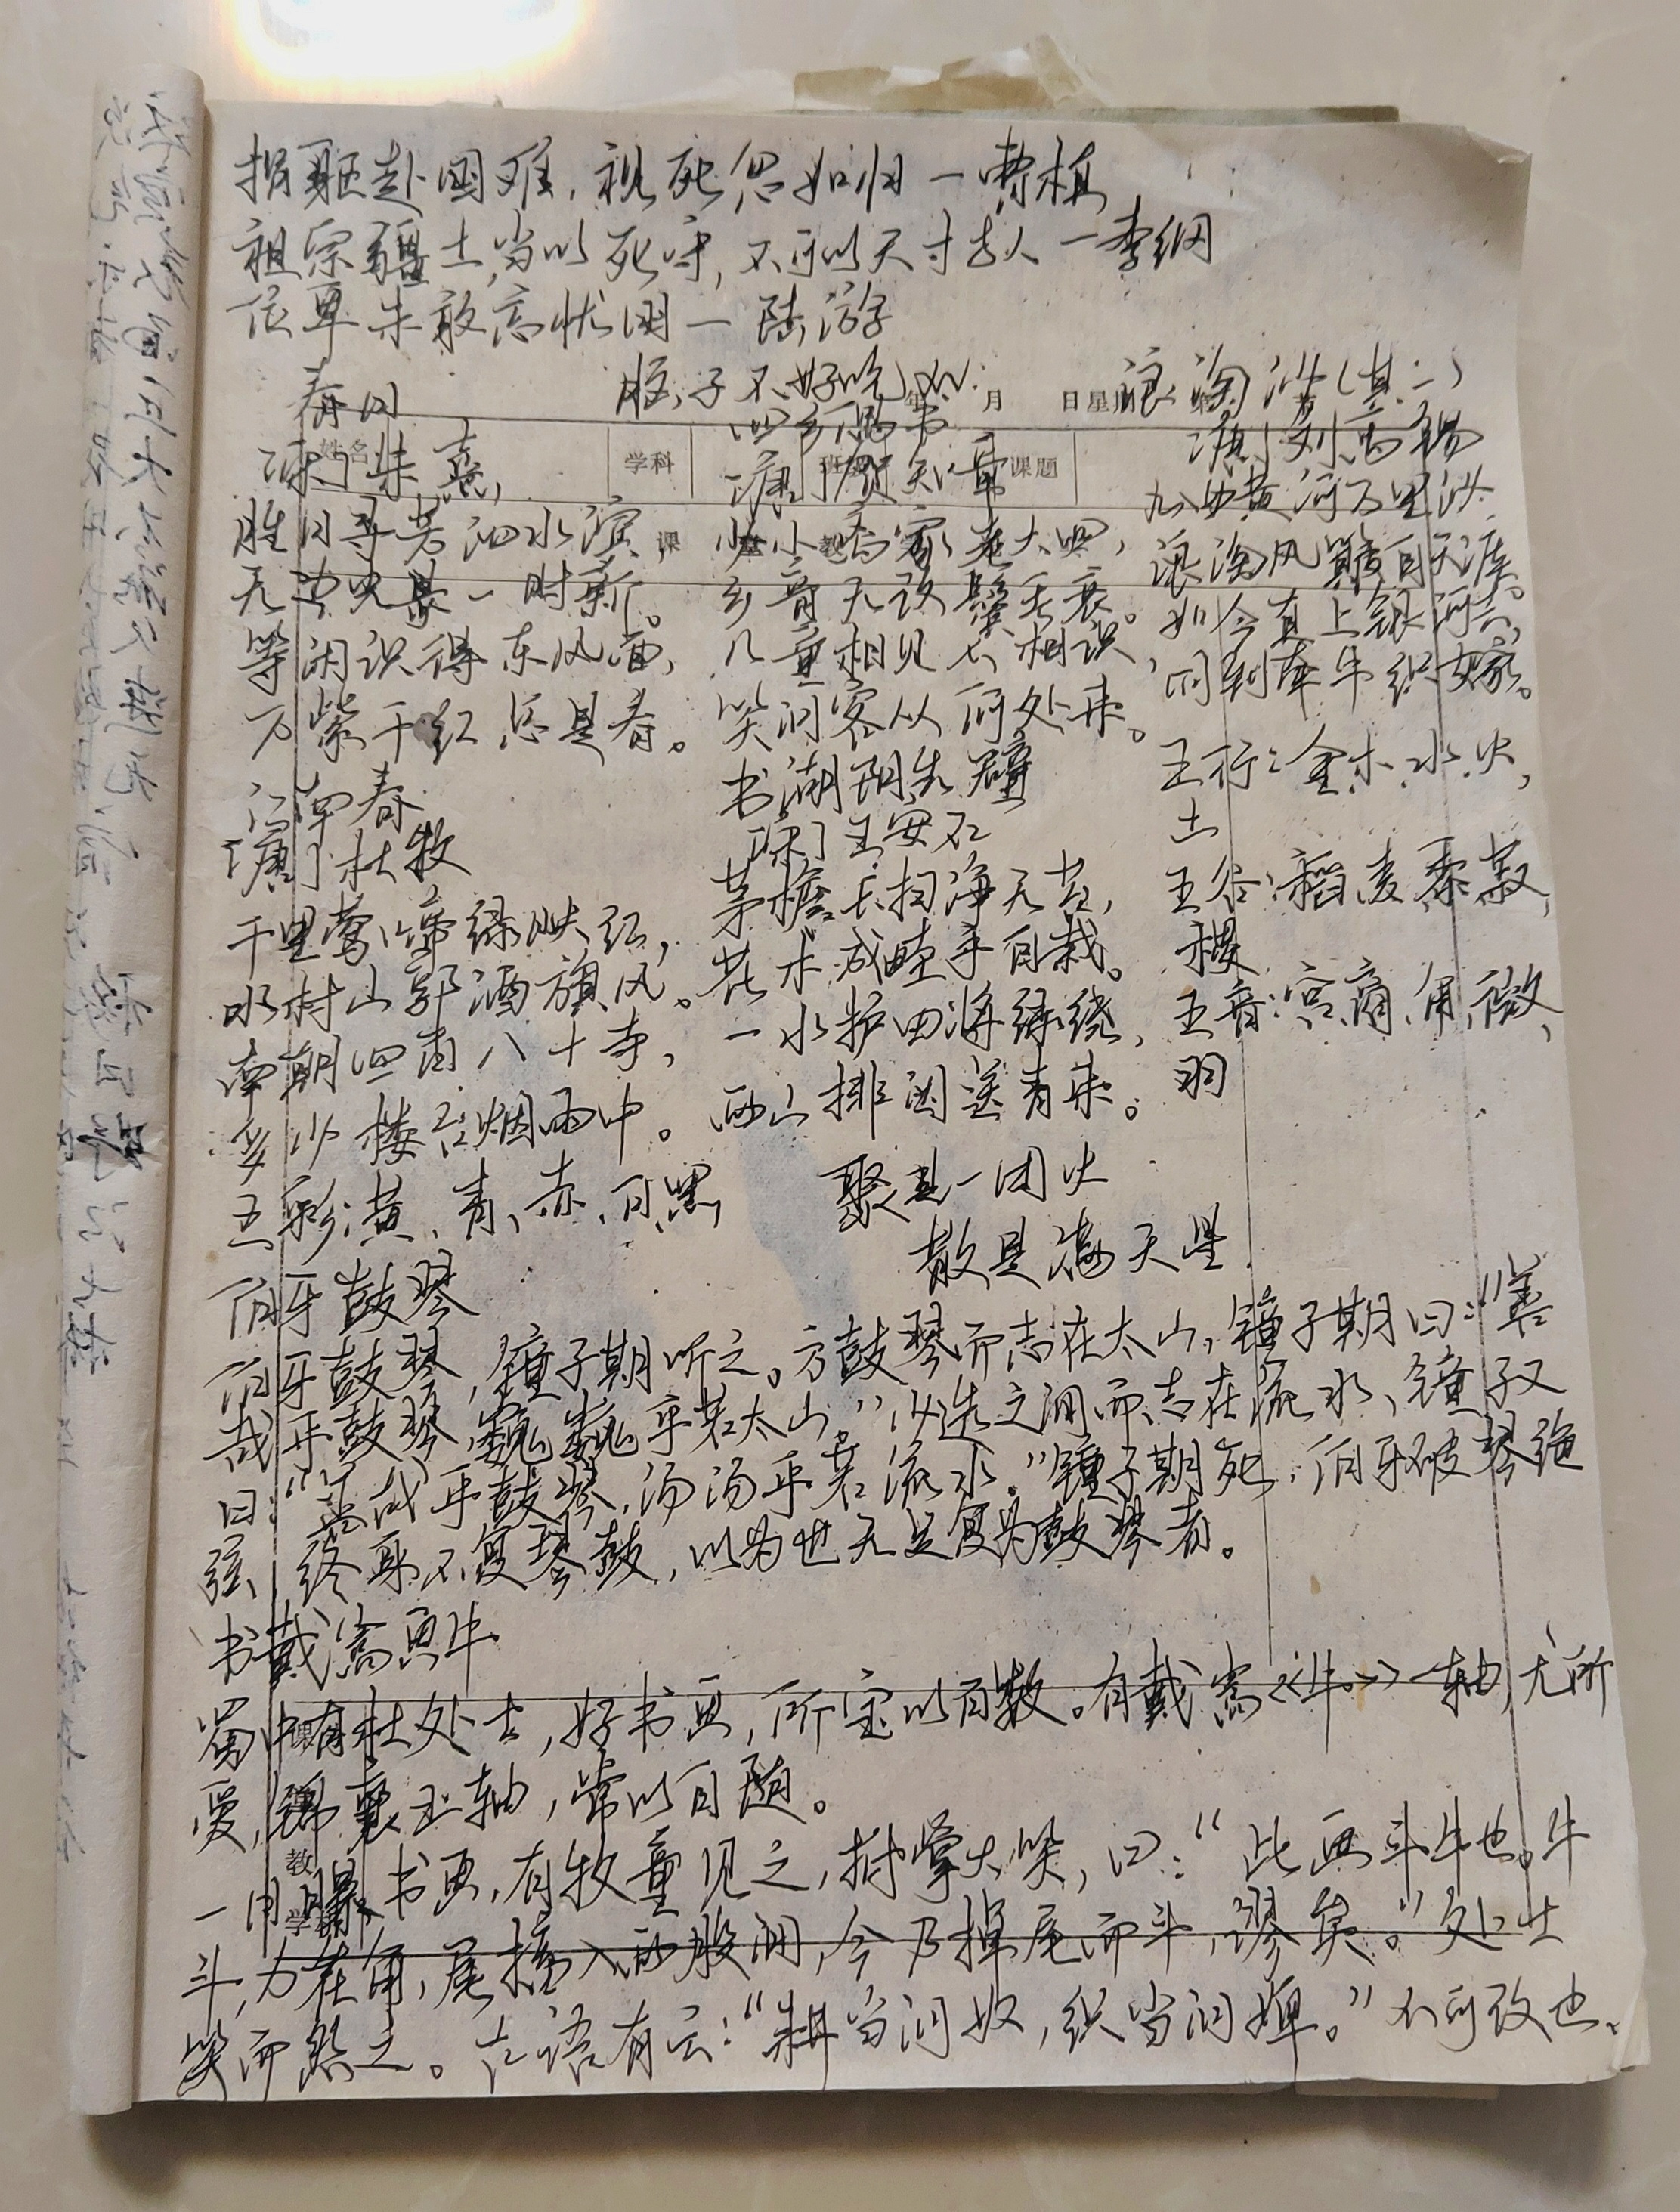 捐躯赴国难，视死忽如归一曹植
祖宗疆土，当以死守，不可以尺寸与人一李纲
位卑未敢忘忧国一陆游
春日
[宋]朱熹
胜日寻芳泗水滨，
无边光景一时新。
等闲识得东风面，
万紫千红总是春。
江南春
[唐]杜牧
千里莺啼绿映红，
水村山郭酒旗风。
南朝四百八十寺，
多少楼台烟雨中。
五彩：黄、青、赤、白、黑
子不好吃
年 月 日 星期
姓名
学科
课题
课
教
回乡偶书
[唐]贺知章
少小离家老大回，
乡音无改鬓毛衰。
儿童相见不相识，
笑问客从何处来。
书湖阴先壁
[宋]王安石
茅檐长扫净无苔，
花木成畦手自栽。
一水护田将绿绕，
两山排闼送青来。
浪淘沙(其一)
[唐]刘禹锡
九曲黄河万里沙，
浪淘风簸自天涯。
如今直上银河去，
同到牵牛织女家。
五行：金、木、水、火、
土
五谷：稻、麦、黍、菽、
稷
五音：宫、商、角、徵、
羽
聚是一团火
散是满天星
伯牙鼓琴
伯牙鼓琴，锺子期听之。方鼓琴而志在太山，锺子期曰：“善
哉乎鼓琴，巍巍乎若太山。”少选之间而志在流水，锺子又
曰：“善哉乎鼓琴，汤汤乎若流水。”锺子期死，伯牙破琴绝
弦，终身不复琴鼓，以为世无足复为鼓琴者。
书戴嵩画牛
蜀中有杜处士，好书画，所宝以百数。有戴嵩《牛》一轴，尤所
爱，锦囊玉轴，常以自随。
一日曝书画，有牧童见之，拊掌大笑，曰：“此画斗牛也。牛
斗，力在角，尾搐入两股间，今乃掉尾而斗，谬矣。”处士
笑而然之。古语有云：“耕当问奴，织当问婢。”不可改也。
教
学